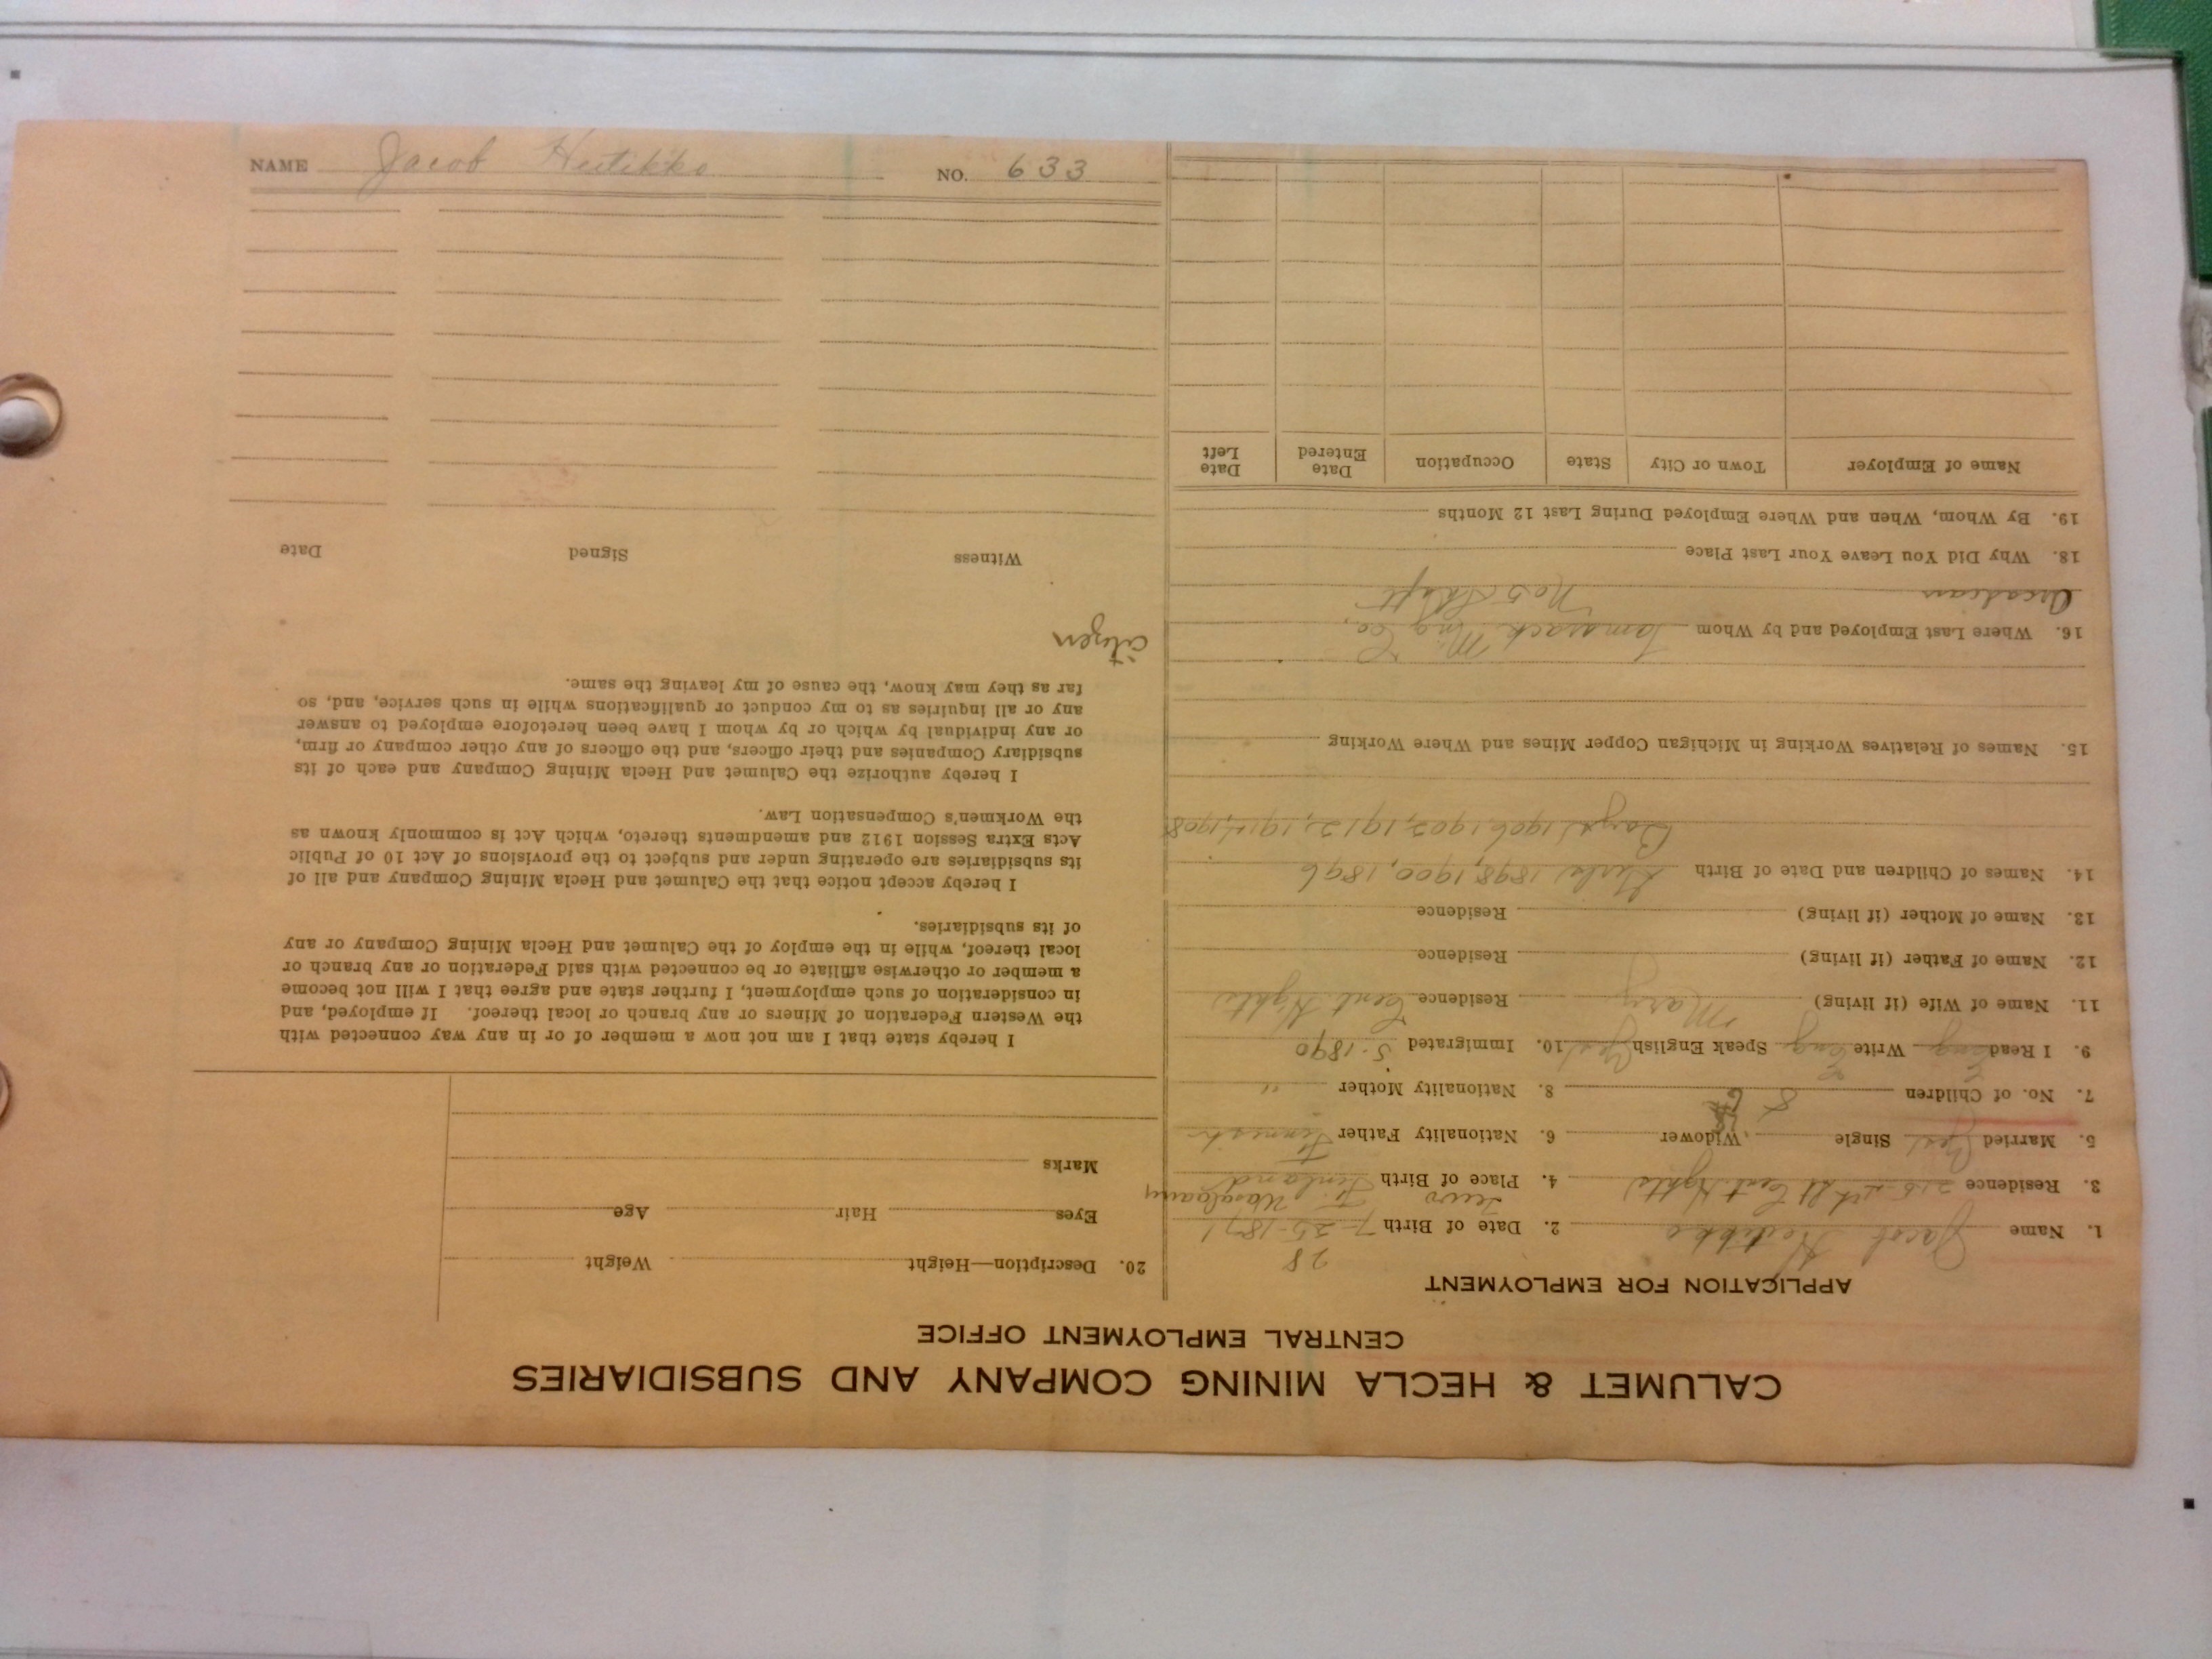 CALUMET & HECLA MINING COMPANY AND SUBSIDIARIES
CENTRAL EMPLOYMENT OFFICE
APPLICATION FOR EMPLOYMENT
28
1. Name Jacob Heitikko 2. Date of Birth 7-25-1871
3. Residence 215 4th St Tent Hghts 4. Place of Birth Finland
5. Married Yes Single Widower 6. Nationality Father Finnish
7. No. of Children 8 8. Nationality Mother "
9. I Read Write Speak English Yes 10. Immigrated 5-1890
11. Name of Wife (if living) Mary Residence Tent Hghts
12. Name of Father (if living) Residence
13. Name of Mother (if living) Residence
14. Names of Children and Date of Birth Girls 1898, 1900, 1896
Boys 1906, 1902, 1912, 1914, 1908
15. Names of Relatives Working in Michigan Copper Mines and Where Working
16. Where Last Employed and by Whom Tamarack Mng Co,
No 5 Shaft
18. Why Did You Leave Your Last Place
19. By Whom, When and Where Employed During Last 12 Months
Name of Employer Town or City State Occupation Date Entered Date Left
20. Description—Height Weight
Eyes Hair Age
Marks
I hereby state that I am not now a member of or in any way connected with
the Western Federation of Miners or any branch or local thereof. If employed, and
in consideration of such employment, I further state and agree that I will not become
a member or otherwise affiliate or be connected with said Federation or any branch or
local thereof, while in the employ of the Calumet and Hecla Mining Company or any
of its subsidiaries.
I hereby accept notice that the Calumet and Hecla Mining Company and all of
its subsidiaries are operating under and subject to the provisions of Act 10 of Public
Acts Extra Session 1912 and amendments thereto, which Act is commonly known as
the Workmen's Compensation Law.
I hereby authorize the Calumet and Hecla Mining Company and each of its
subsidiary Companies and their officers, and the officers of any other company or firm,
or any individual by which or by whom I have been heretofore employed to answer
any or all inquiries as to my conduct or qualifications while in such service, and, so
far as they may know, the cause of my leaving the same.
citizen
Witness Signed Date
NAME Jacob Heitikko NO. 633